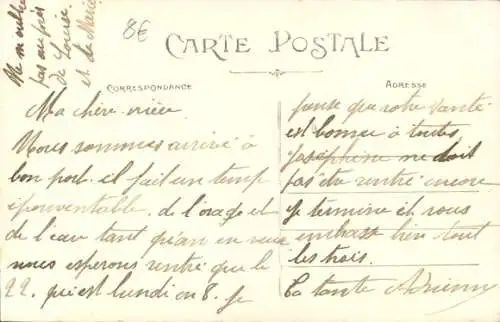 Ne m'oublie
pas auprès
de Louise
et de Marie
8€
CARTE POSTALE
CORRESPONDANCE
ADRESSE
Ma chère nièce
Nous sommes arrivé à
bon port. il fait un temp
épouventable. de l'orage et
de l'eau tant qu'on en veux
nous esperons rentré que le
22. qui est lundi en 8. Je
pense que votre santé
est bonne à toutes.
Joséphine ne doit
pas être rentré encore
Je termine et vous
embrasse bien tout
les trois.
Ta tante Adrienne